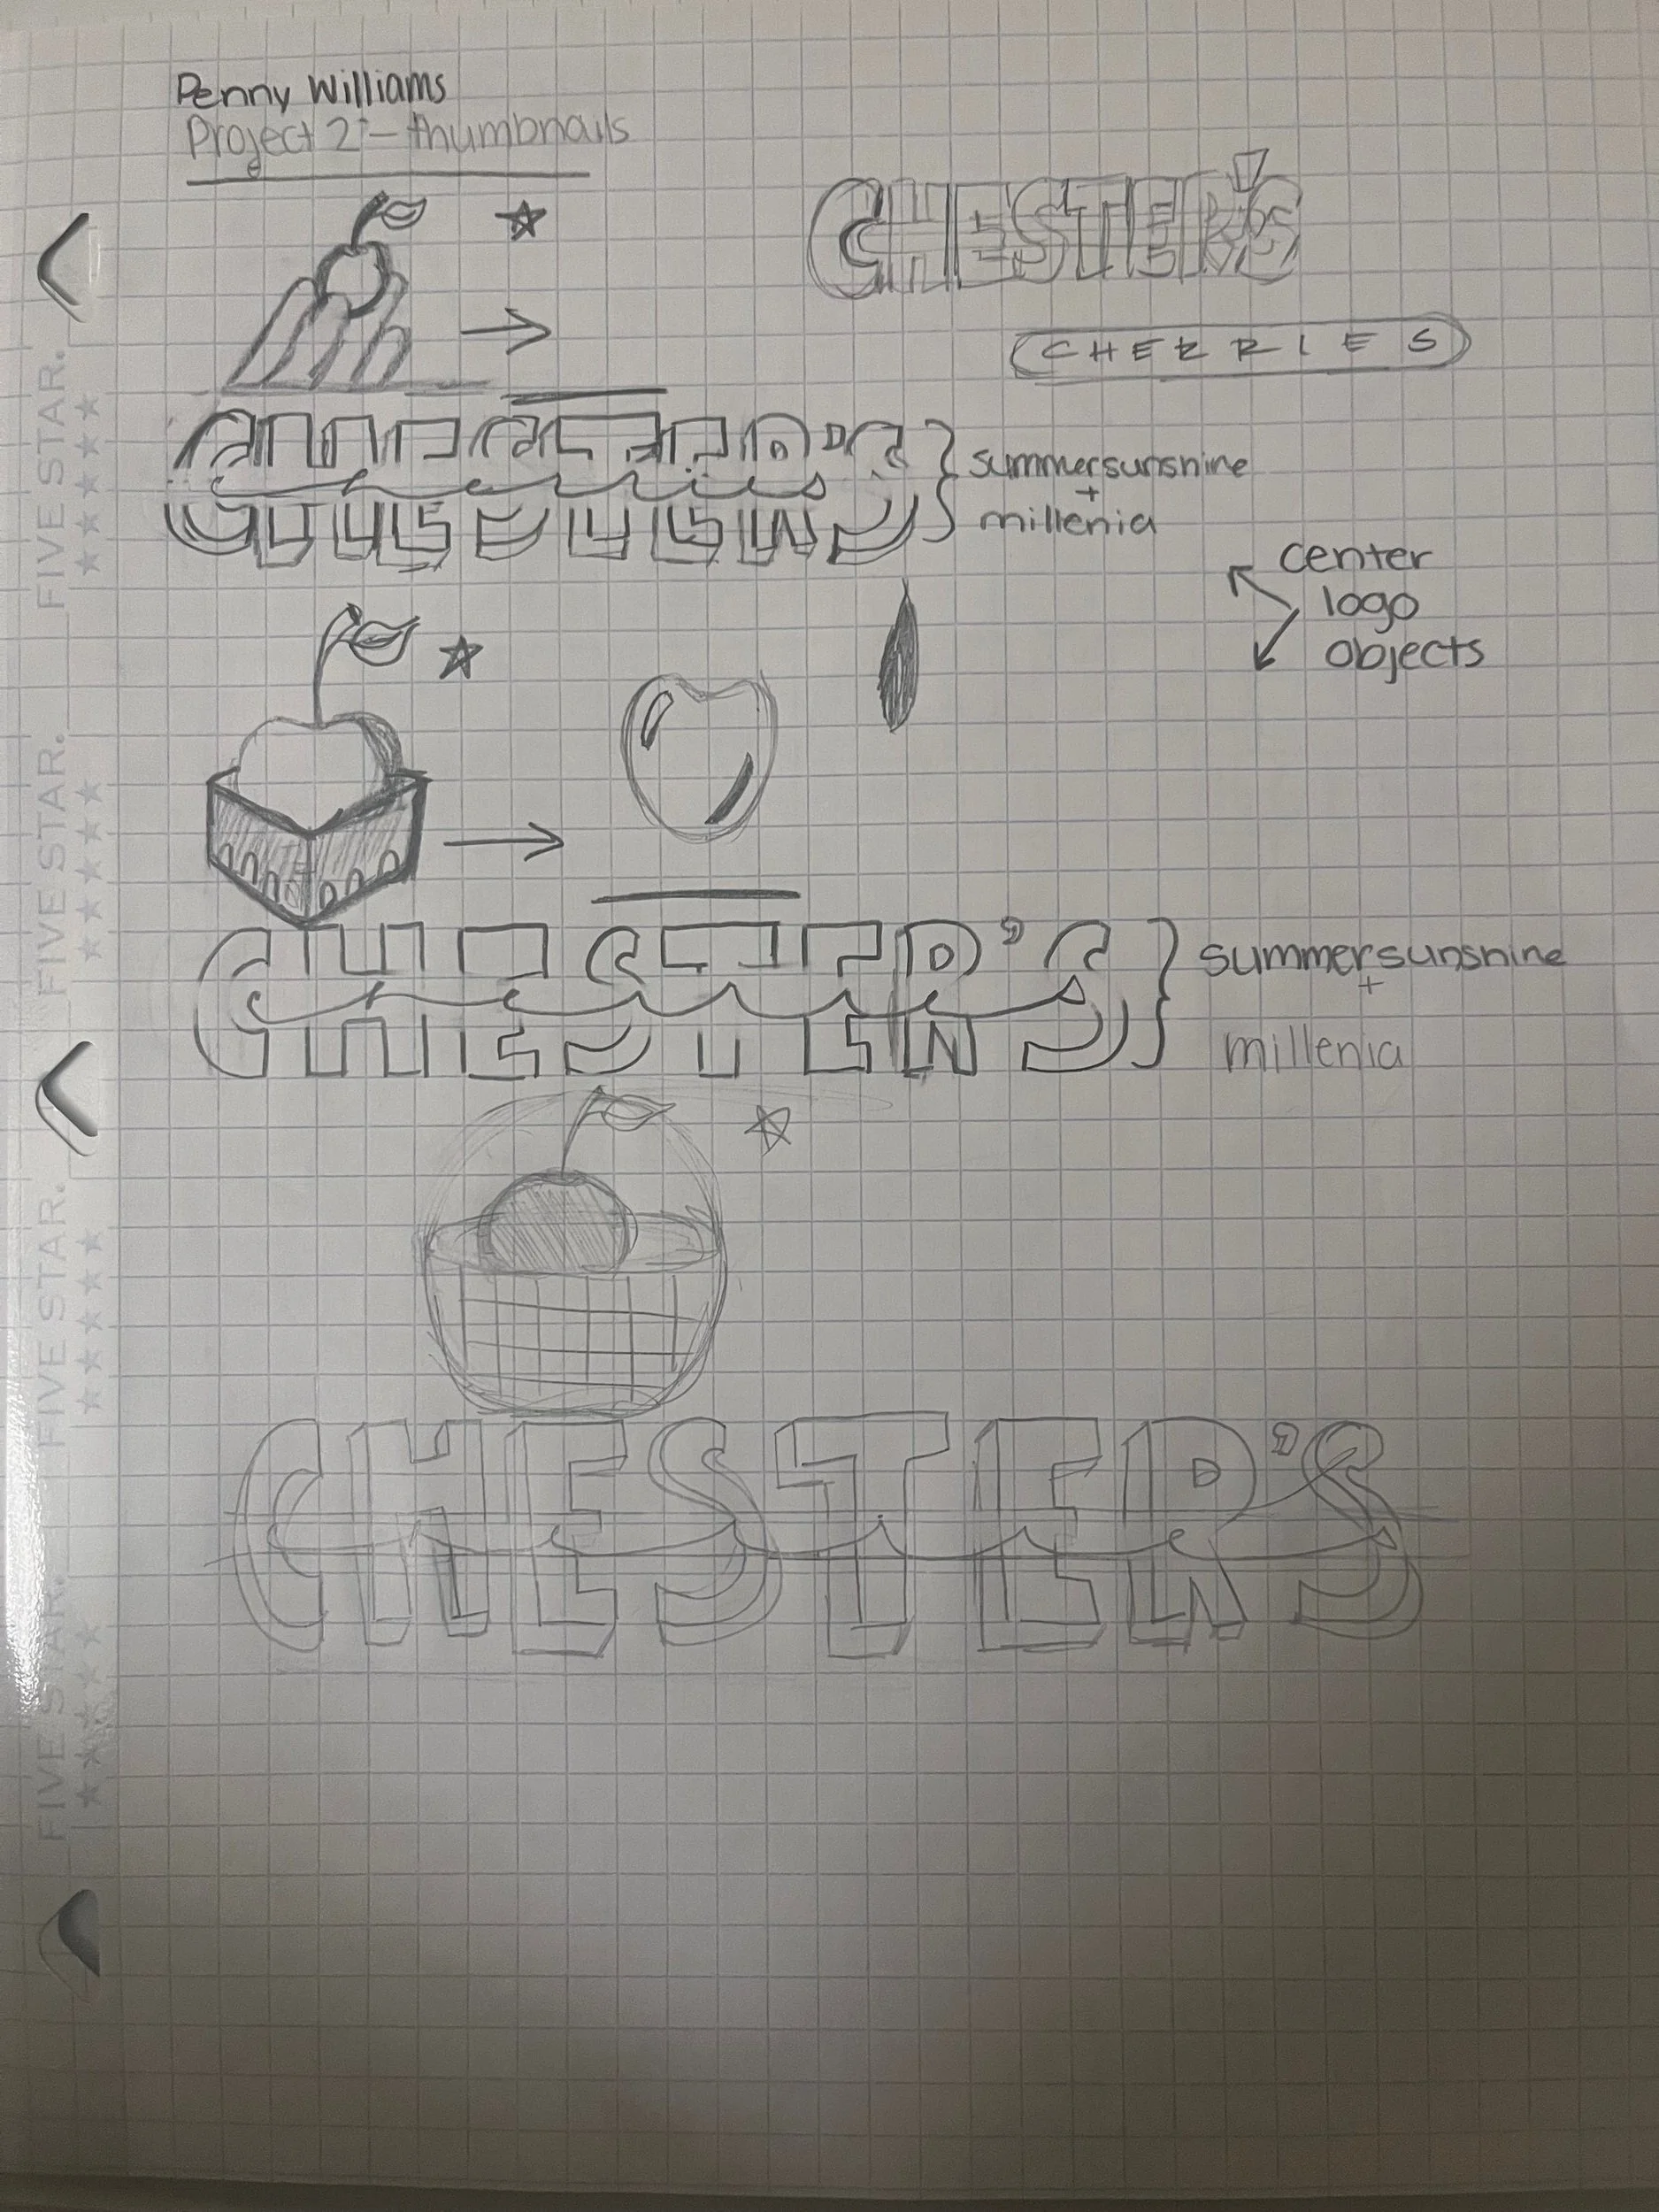 Penny Williams
Project 2 - thumbnails
CHESTER'S
CHERRIES
CHESTER'S
summersunshine
+
millenia
center
logo
objects
CHESTER'S
summersunshine
+
millenia
CHESTER'S
FIVE STAR.
FIVE STAR.
FIVE STAR.
FIVE STAR.